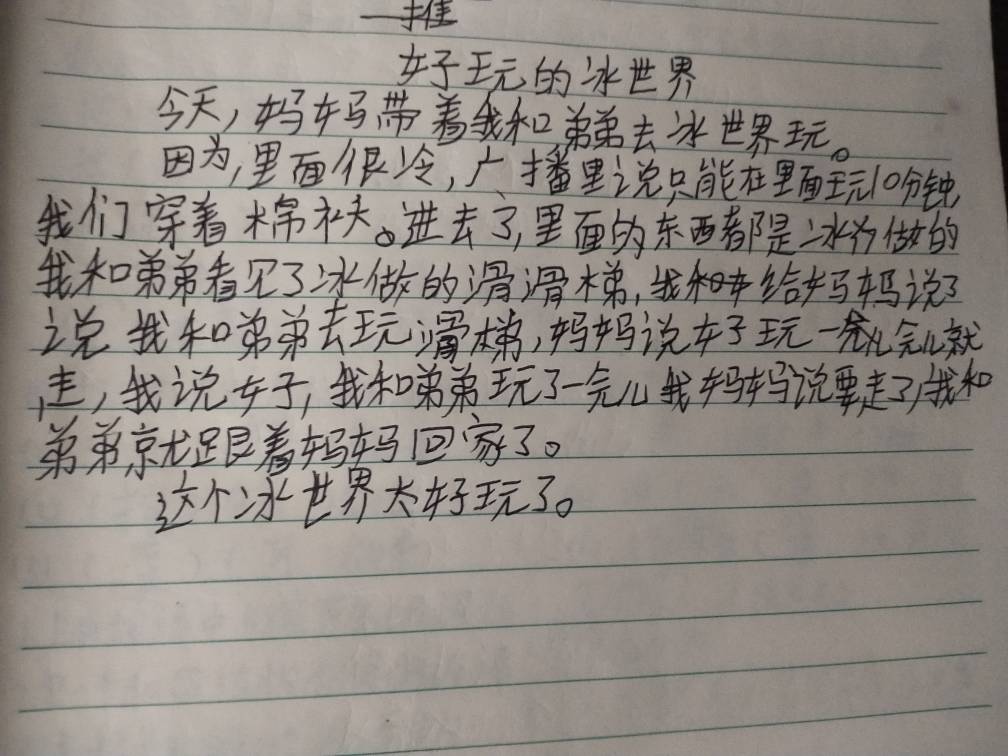 好玩的冰世界
今天,妈妈带着我和弟弟去冰世界玩。
因为,里面很冷,广播里说只能在里面玩10分钟,
我们穿着棉袄。进去了,里面的东西都是冰做的
我和弟弟看见了冰做的滑滑梯,我和给妈妈说了
说我和弟弟去玩滑梯,妈妈说好玩一会儿就
走,我说好,我和弟弟玩了一会儿我妈妈说要走了,我和
弟弟就跟着妈妈回家了。
这个冰世界太好玩了。